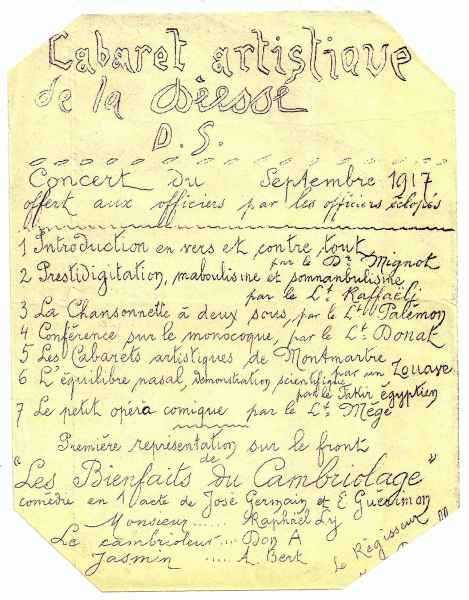 Cabaret artistique
de la Déesse
D. S.
Concert du Septembre 1917
offert aux officiers par les officiers éclopés
1 Introduction en vers et contre tout
par le Dr Mignot
2 Prestidigitation, maboulisme et somnambulisme
par le Lt Raffaëli
3 La Chansonnette à deux sous, par le Lt Palémon
4 Conférence sur le monocoque, par le Lt Donat
5 Les Cabarets artistiques de Montmartre
par un Zouave
6 L'équilibre nasal, démonstration scientifique
par le Fakir égyptien
7 Le petit opéra comique par le Lt Mége
Première représentation sur le front
de
"Les Bienfaits du Cambriolage"
comédie en 1 acte de José Germain et E Guérinon
Monsieur ...... Raphaël Ly
Le cambrioleur ... Don A
Jasmin ..... A. Bert
Le Régisseur